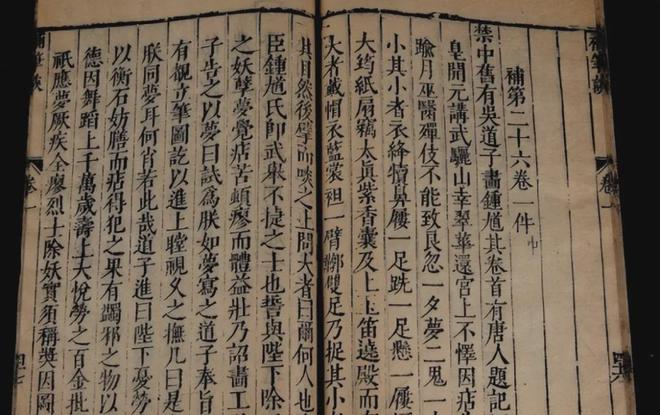 補筆談
卷一
補第二十六卷一件
禁中舊有吳道子畫鍾馗其卷首有唐人題記
皇開元講武驪山幸翠華還宮上不懌因痁
踰月巫醫殫伎不能致良忽一夕夢二鬼一
小其小者衣絳犢鼻屨一足跣一足懸一屨
大筠紙扇竊太真紫香囊及上玉笛遶殿而
大者戴帽衣藍裳袒一臂鞹雙足乃捉其小
其目然後擘而啖之上問大者曰爾何人也
臣鍾馗氏即武舉不捷之士也誓與陛下除
之妖孽夢覺痁苦頓瘳而體益壯乃詔畫工
子告之以夢曰試為朕如夢寫之道子奉旨
有覩立筆圖訖以進上瞠視久之撫几曰是
朕同夢耳何肖若此哉道子進曰陛下憂勞
以衡石妨膳而痁得犯之果有蠲邪之物以
德因舞蹈上千萬歲壽上大悅勞之百金批
祇應夢厥疾全瘳烈士除妖實須稱獎因圖
補筆談
卷一
四七